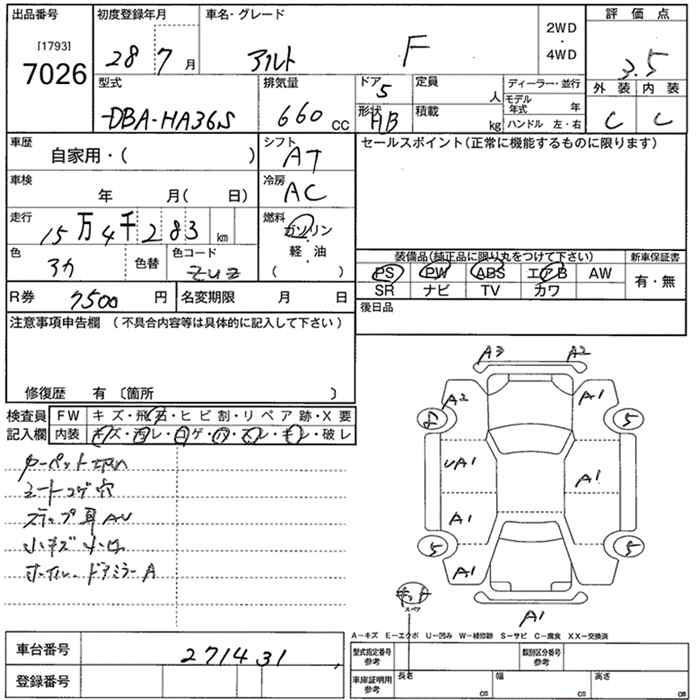 出品番号 初度登録年月 車名・グレード 2WD・4WD 評価点
[1793] 7026 28 7月 アルト F 3.5
型式 排気量 ドア 5 定員 人 ディーラー・並行 外装 内装
DBA-HA36S 660 CC 形状 HB 積載 kg モデル年式 年 C C
ハンドル 左・右
車歴 自家用・( ) シフト AT セールスポイント(正常に機能するものに限ります)
車検 年 月( 日) 冷房 AC
走行 15万4千283 km 燃料 ガソリン・軽・油 ( )
色 アカ 色替 色コード ZUZ
装備品(純正品に限り丸をつけて下さい) 新車保証書
PS PW ABS エアB AW 有・無
SR ナビ TV カワ
R券 7500 円 名変期限 月 日 後日品
注意事項申告欄 (不具合内容等は具体的に記入して下さい)
修復歴 有 〔箇所 〕
検査員 FW キズ・飛石・ヒビ割・リペア跡・X要
記入欄 内装 キズ・汚レ・コゲ・穴・スレ・キレ・破レ
カーペット切れ
シートコゲ穴
ステップ
小キズ 小凹
ホイル ドアミラーA
A3 A2
A2 A1
5
UA1 A1
A1
5 5
A1
A1
スペア
A−キズ E−エクボ U−凹み W−補修跡 S−サビ C−腐食 XX−交換済
車台番号 271431
登録番号
型式指定番号 参考 類別区分番号 参考
車庫証明用 参考 長さ cm 幅 cm 高さ cm